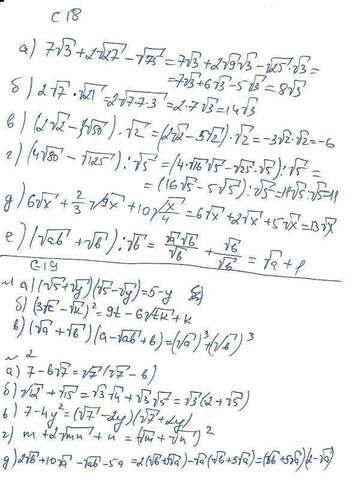 С 18
а) 7√3 + 2√27 - √75 = 7√3 + 2√9√3 - √25·√3 =
= 7√3 + 6√3 - 5√3 = 8√3
б) 2√7 · √21 = 2√7·7·3 = 2·7√3 = 14√3
в) (2√2 - √50)·√2 = (2√2 - 5√2)·√2 = -3√2·√2 = -6
г) (4√80 - √125):√5 = (4·√16√5 - √25·√5):√5 =
= (16√5 - 5√5):√5 = 11√5:√5 = 11
д) 6√x + 2/3 √9x + 10√x/4 = 6√x + 2√x + 5√x = 13√x
е) (√ab + √b):√b = √a√b/√b + √b/√b = √a + 1
С 19
№1 а) (√5 + √y)(√5 - √y) = 5 - y
б) (3√t - √k)² = 9t - 6√tk + k
в) (√a + √b)(a - √ab + b) = (√a)³ + (√b)³
№2
а) 7 - 6√7 = √7(√7 - 6)
б) √12 + √15 = √3√4 + √3√5 = √3(2 + √5)
в) 7 - 4y² = (√7 - 2y)(√7 + 2y)
г) m + 2√mn + n = (√m + √n)²
д) 2√b + 10√a - √ab - 5a = 2(√b + 5√a) - √a(√b + 5√a) = (√b + 5√a)(2 - √a)